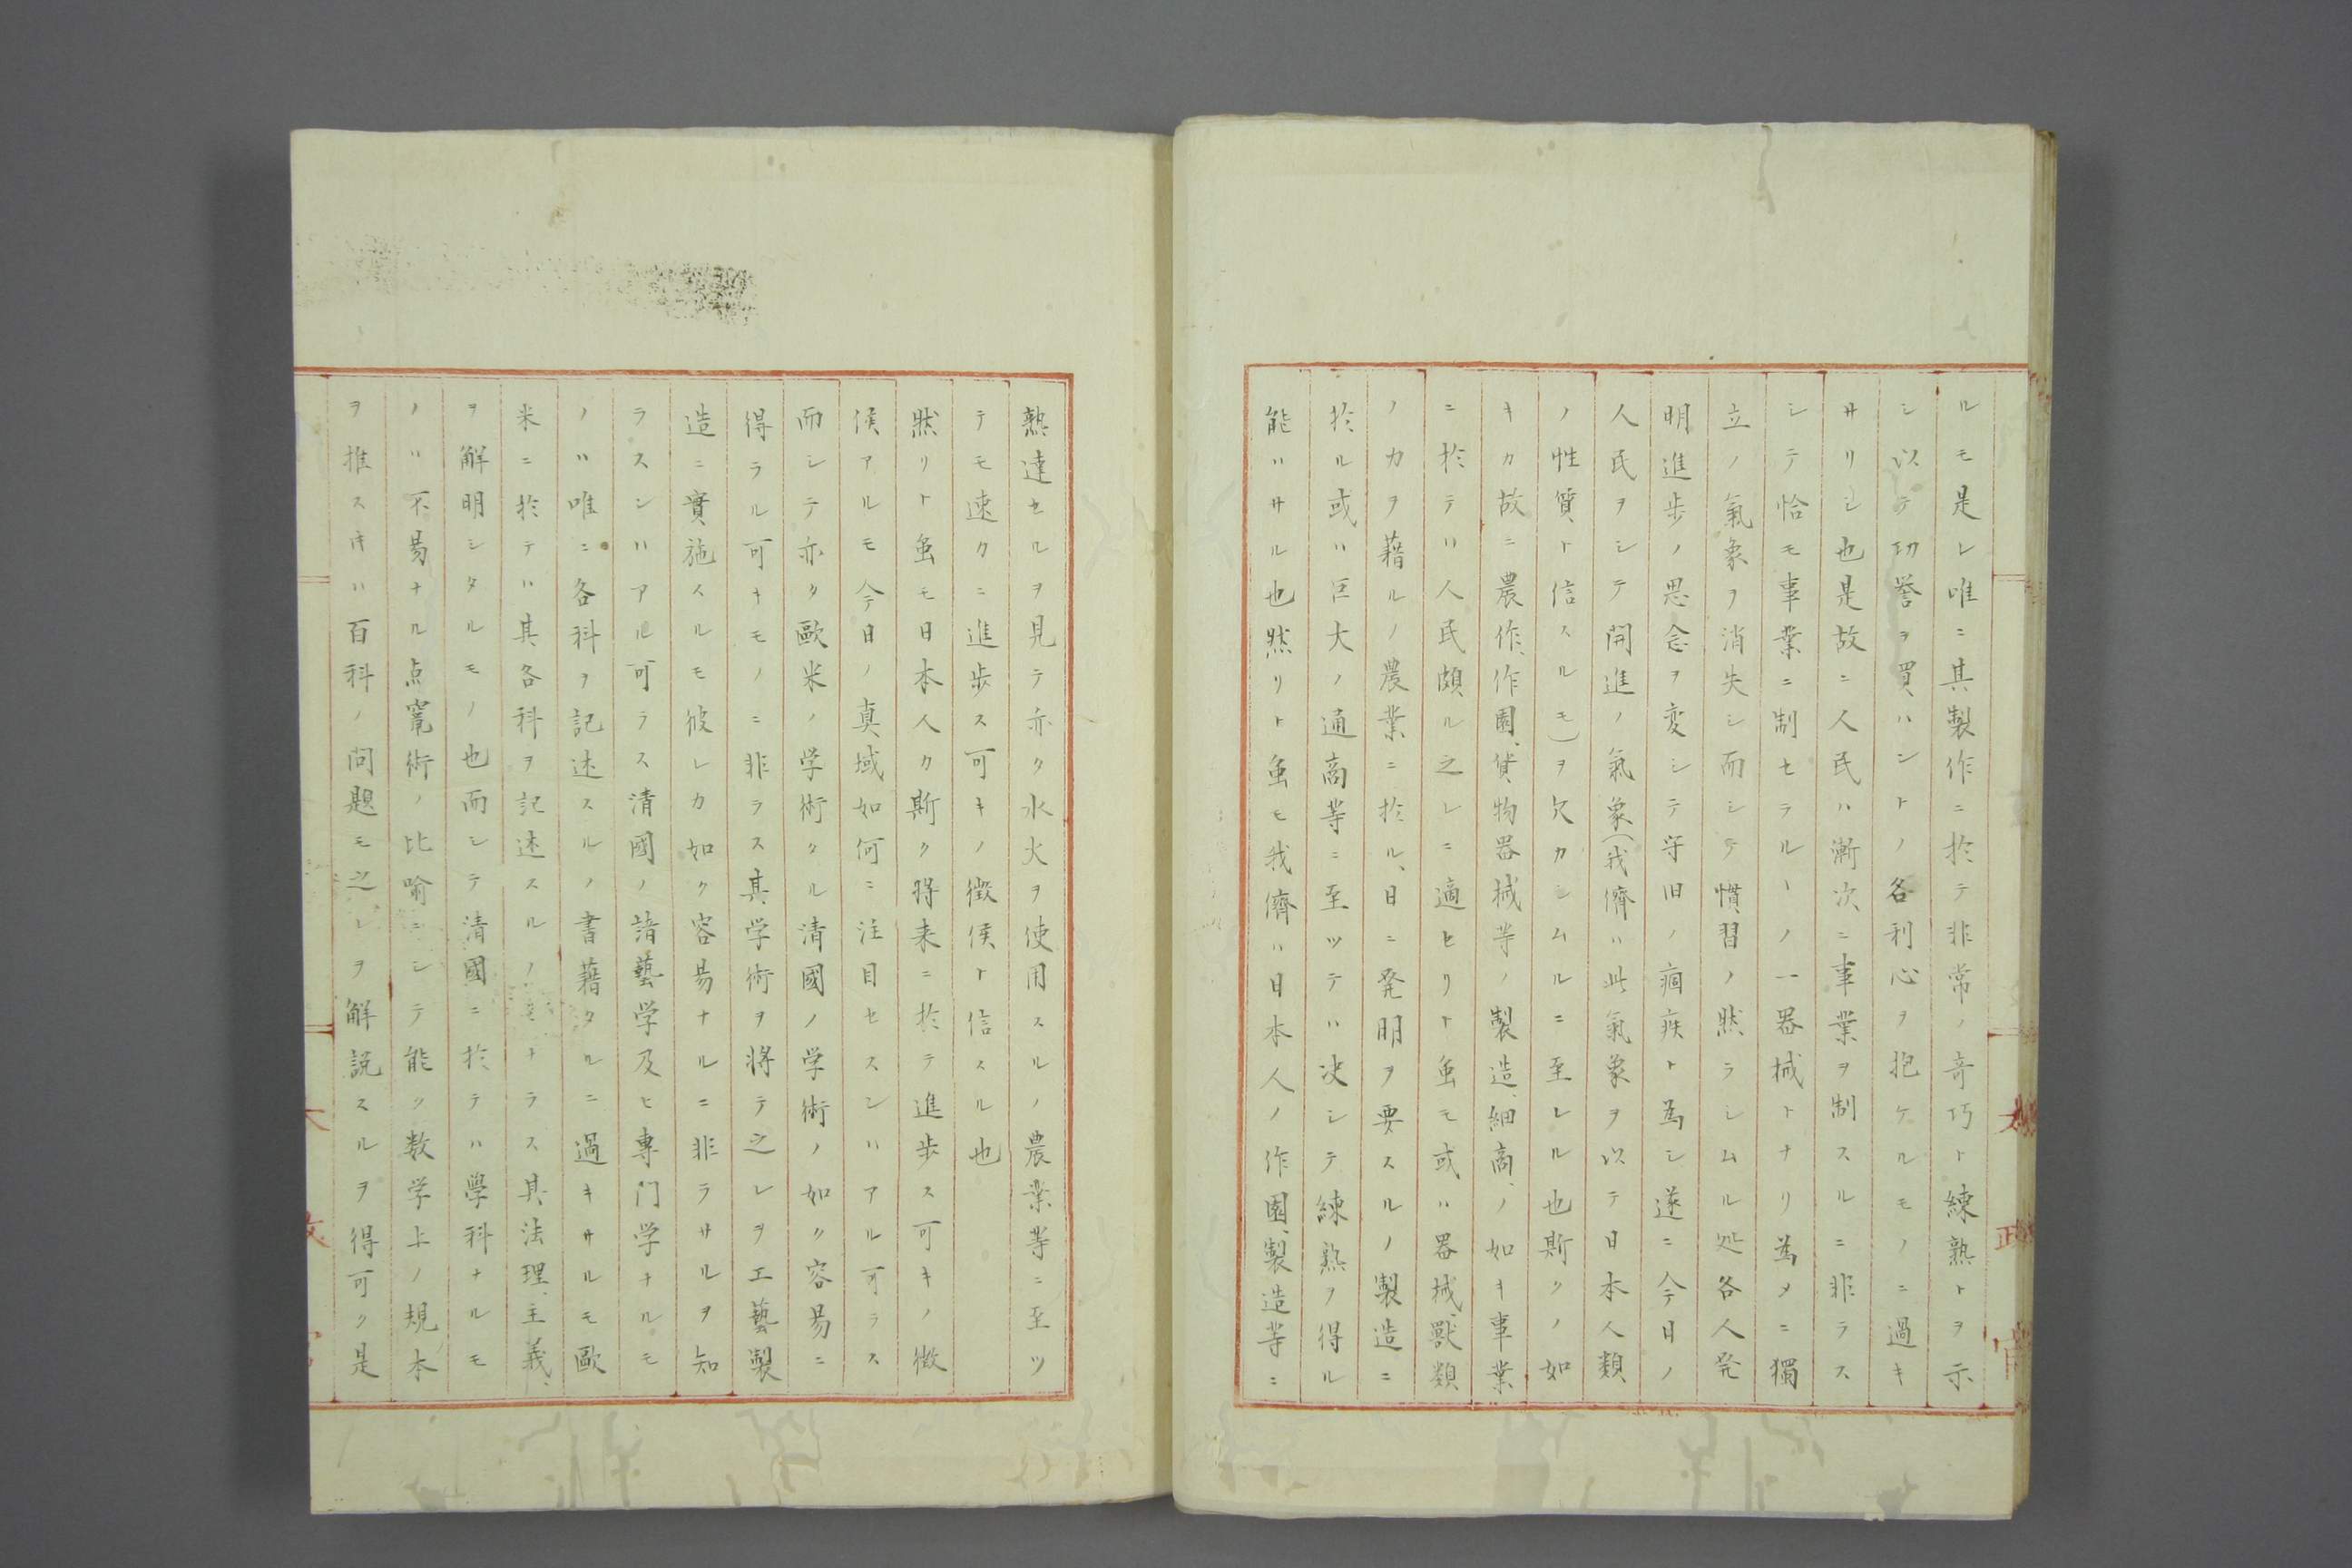 ルモ是レ唯ニ其製作ニ於テ非常ノ奇巧ト練熟トヲ示
シ以テ功誉ヲ買ハントノ各利心ヲ抱ケルモノニ過キ
サリシ也是故ニ人民ハ漸次ニ事業ヲ制スルニ非ラス
シテ恰モ事業ニ制セラルヽノ一器械トナリ為メニ獨
立ノ氣象ヲ消失シ而シテ慣習ノ然ラシムル処各人発
明進歩ノ思念ヲ変シテ守旧ノ痼疾ト為シ遂ニ今日ノ
人民ヲシテ開進ノ氣象(我儕ハ此氣象ヲ以テ日本人類
ノ性質ト信スルモ)ヲ欠カシムルニ至レル也斯クノ如
キカ故ニ農作、作園、貨物器械等ノ製造、細商、ノ如キ事業
ニ於テハ人民頗ル之レニ適セリト虽モ或ハ器械、獣類
ノカヲ藉ルノ農業ニ於ル、日ニ発明ヲ要スルノ製造ニ
於ル或ハ巨大ノ通商等ニ至ツテハ决シテ練熟ヲ得ル
能ハサル也然リト虽モ我儕ハ日本人ノ作園、製造等ニ
熟達セルヲ見テ亦タ水火ヲ使用スルノ農業等ニ至ツ
テモ速カニ進歩ス可キノ徴候ト信スル也
然リト虽モ日本人カ斯ク将来ニ於テ進歩ス可キノ徴
候アルモ今日ノ真域如何ニ注目セスンハアル可ラス
而シテ亦タ歐米ノ学術タル清國ノ学術ノ如ク容易ニ
得ラル可キモノニ非ラス其学術ヲ将テ之レヲ工藝製
造ニ實施スルモ彼レカ如ク容易ナルニ非ラサルヲ知
ラスンハアル可ラス清國ノ諸藝学及ヒ専门学ナルモ
ノハ唯ニ各科ヲ記述スルノ書藉タルニ過キサルモ歐
米ニ於テハ其各科ヲ記述スルノミナラス其法理、主義、
ヲ解明シタルモノ也而シテ清國ニ於テハ學科ナルモ
ノハ不易ナル点竄術ノ比喻ニシテ能ク数学上ノ規本
ヲ推ストキハ百科ノ问題モ之レヲ解説スルヲ得可ク是
太政官